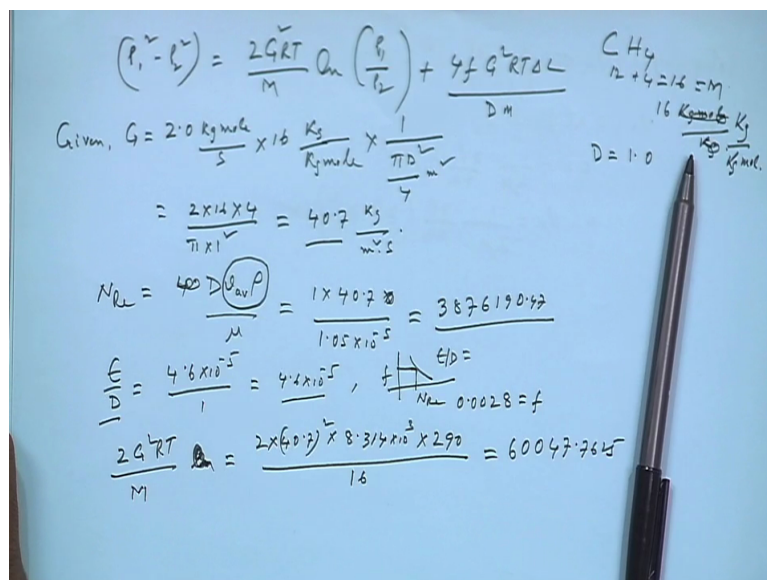 (P₁² - P₂²) = 2G²RT/M ln (P₁/P₂) + 4f G²RTΔL/DM
CH4
12 + 4 = 16 = M
16 Kgmole Kg/Kgmol.
D = 1.0
Given, G = 2.0 Kgmole/S × 16 Kg/Kgmole × 1/(πD²/4 m²)
= 2×16×4/π×1² = 40.7 Kg/m².S.
N_Re = D v_av ρ/μ = 1×40.7/1.05×10⁻⁵ = 3876190.47
E/D = 4.6×10⁻⁵/1 = 4.6×10⁻⁵, f E/D =
N_Re 0.0028 = f
2G²RT/M = 2×(40.7)²×8.314×10³×290/16 = 60047.7625